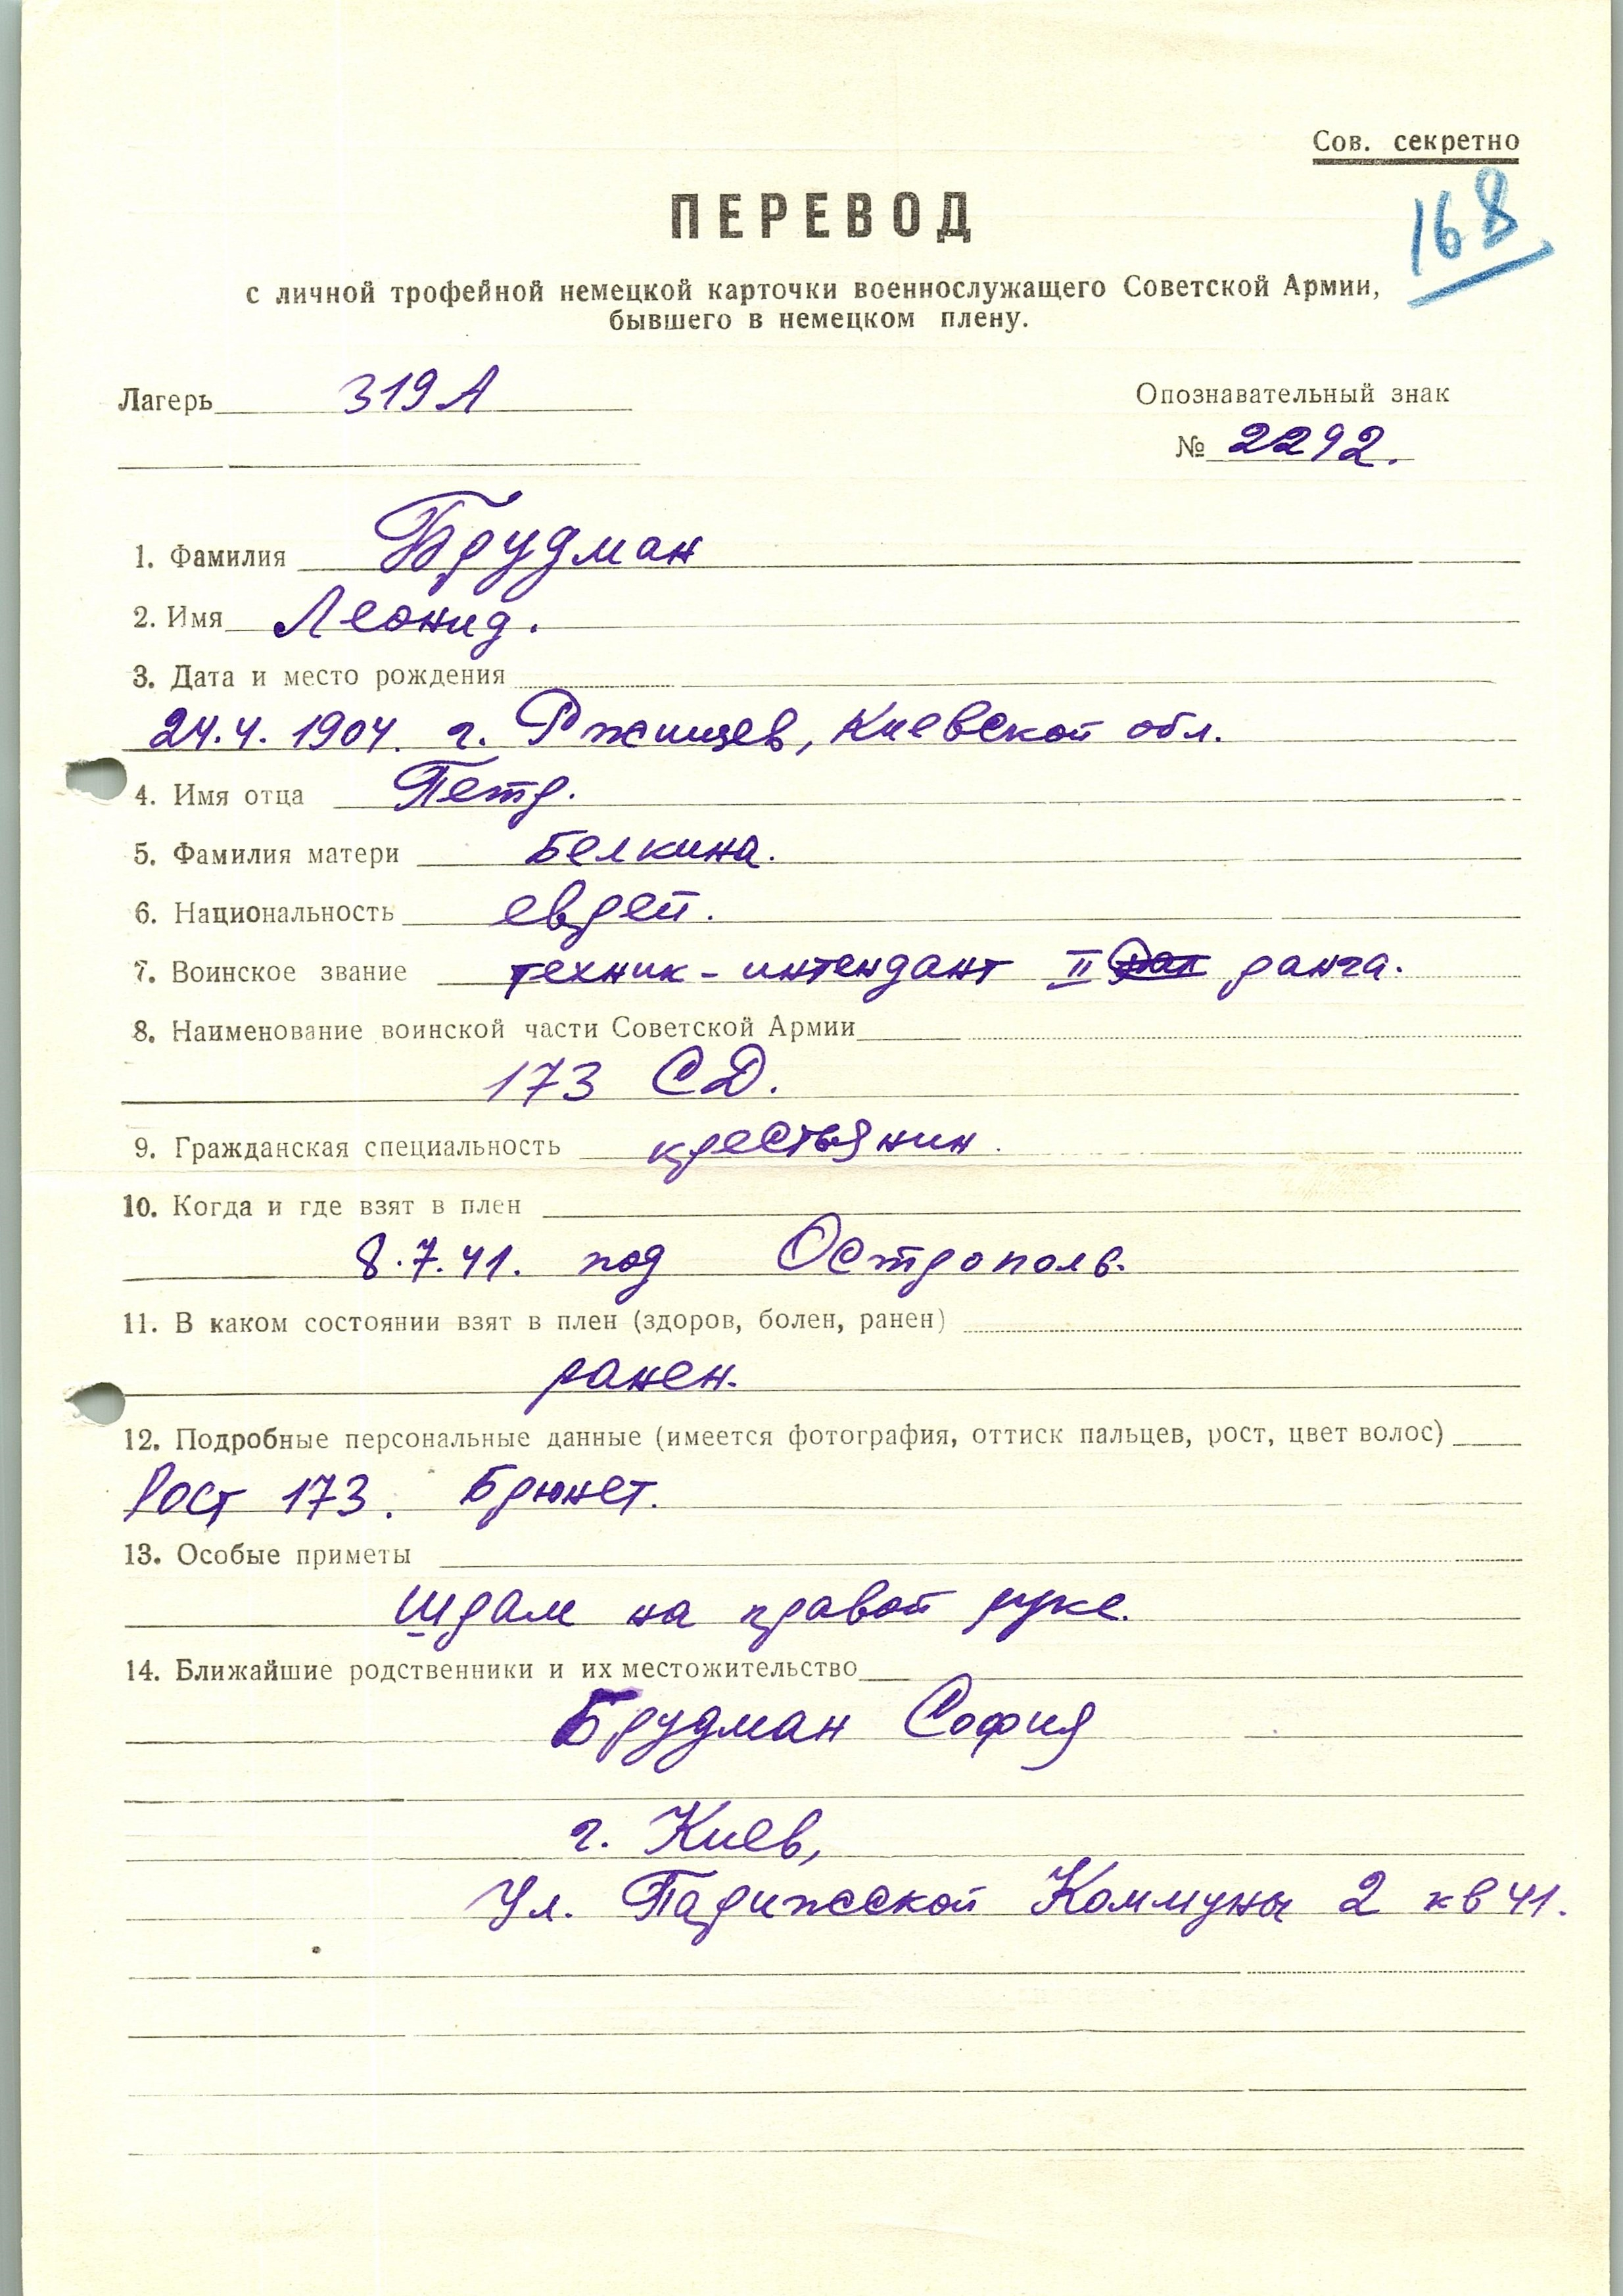 Сов. секретно
168
ПЕРЕВОД
с личной трофейной немецкой карточки военнослужащего Советской Армии,
бывшего в немецком плену.
Лагерь 319 А
Опознавательный знак
№ 2292.
1. Фамилия Брудман
2. Имя Леонид.
3. Дата и место рождения
24.4. 1904. г. Ржищев, Киевской обл.
4. Имя отца Петр.
5. Фамилия матери Белкина.
6. Национальность еврей.
7. Воинское звание техник-интендант II ранга.
8. Наименование воинской части Советской Армии
173 СД.
9. Гражданская специальность крестьянин.
10. Когда и где взят в плен
8.7.41. под Острополь.
11. В каком состоянии взят в плен (здоров, болен, ранен)
ранен.
12. Подробные персональные данные (имеется фотография, оттиск пальцев, рост, цвет волос)
Рост 173. Брюнет.
13. Особые приметы
Шрам на правой руке.
14. Ближайшие родственники и их местожительство
Брудман София
г. Киев,
Ул. Парижской Коммуны 2 кв 41.